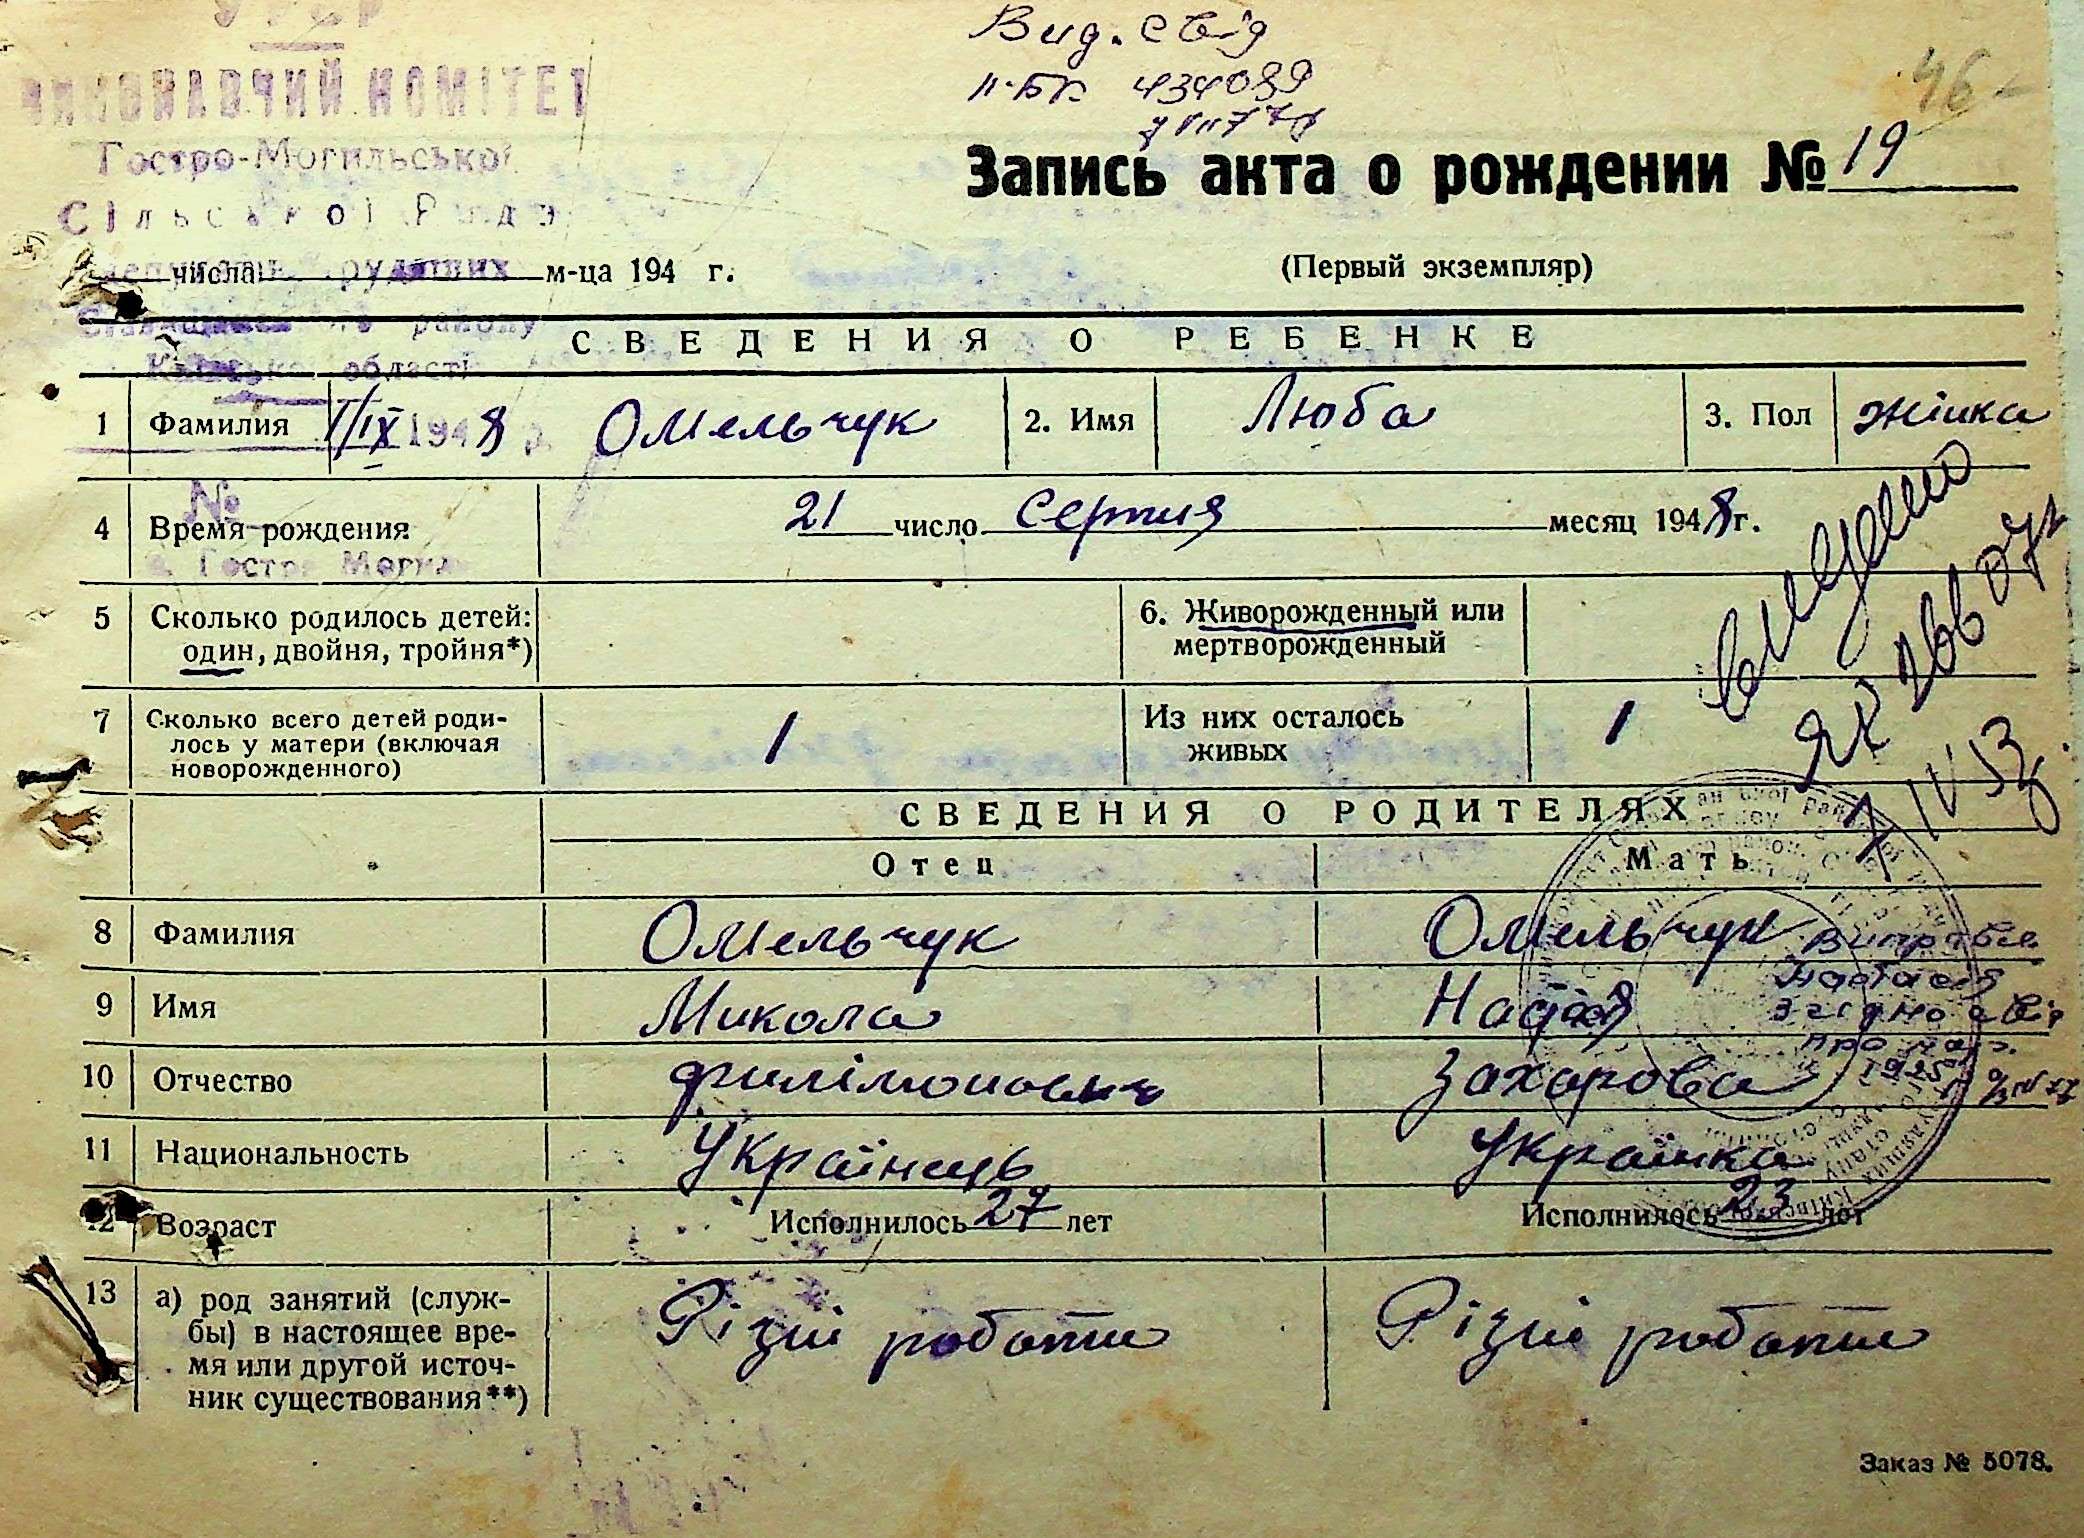 УРСР
ВИКОНАВЧИЙ КОМІТЕТ
Гостро-Могильської
Сільської Ради
депутатів трудящих
Ставищанського району
Київської області
1/IX 1948 р.
№
с. Гостра Могила
Вид. свід
II-БК 434089
46
Запись акта о рождении № 19
числа м-ца 194 г.
(Первый экземпляр)
СВЕДЕНИЯ О РЕБЕНКЕ
1 Фамилия Омельчук 2. Имя Люба 3. Пол жінка
4 Время рождения 21 число Серпня месяц 1948 г.
5 Сколько родилось детей:
один, двойня, тройня*)
6. Живорожденный или
мертворожденный
7 Сколько всего детей роди-
лось у матери (включая
новорожденного)
1
Из них осталось
живых
1
СВЕДЕНИЯ О РОДИТЕЛЯХ
Отец Мать
8 Фамилия Омельчук Омельчук
9 Имя Микола Надія
10 Отчество Филімонович Захарова
Виправлено
Настасія
Згідно свід
про нар.
1925
11 Национальность Українець Українка
12 Возраст Исполнилось 27 лет Исполнилось 23 лет
13 а) род занятий (служ-
бы) в настоящее вре-
мя или другой источ-
ник существования**)
Різні роботи Різні роботи
Заказ № 5078.